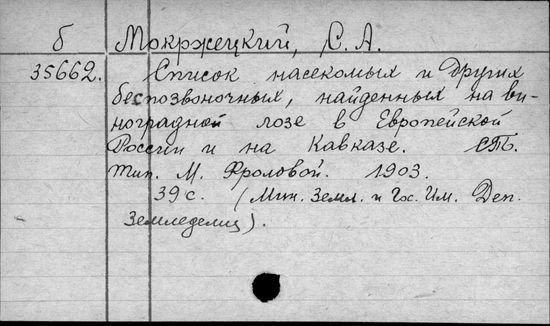 б Мокржецкий, С. А.
35662. Список насекомых и других
беспозвоночных, найденных на ви-
ноградной лозе в Европейской
России и на Кавказе. СПб.
тип. М. Фроловой. 1903.
39 с. (Мин. Земл. и Гос. Им. Деп.
Земледелия).